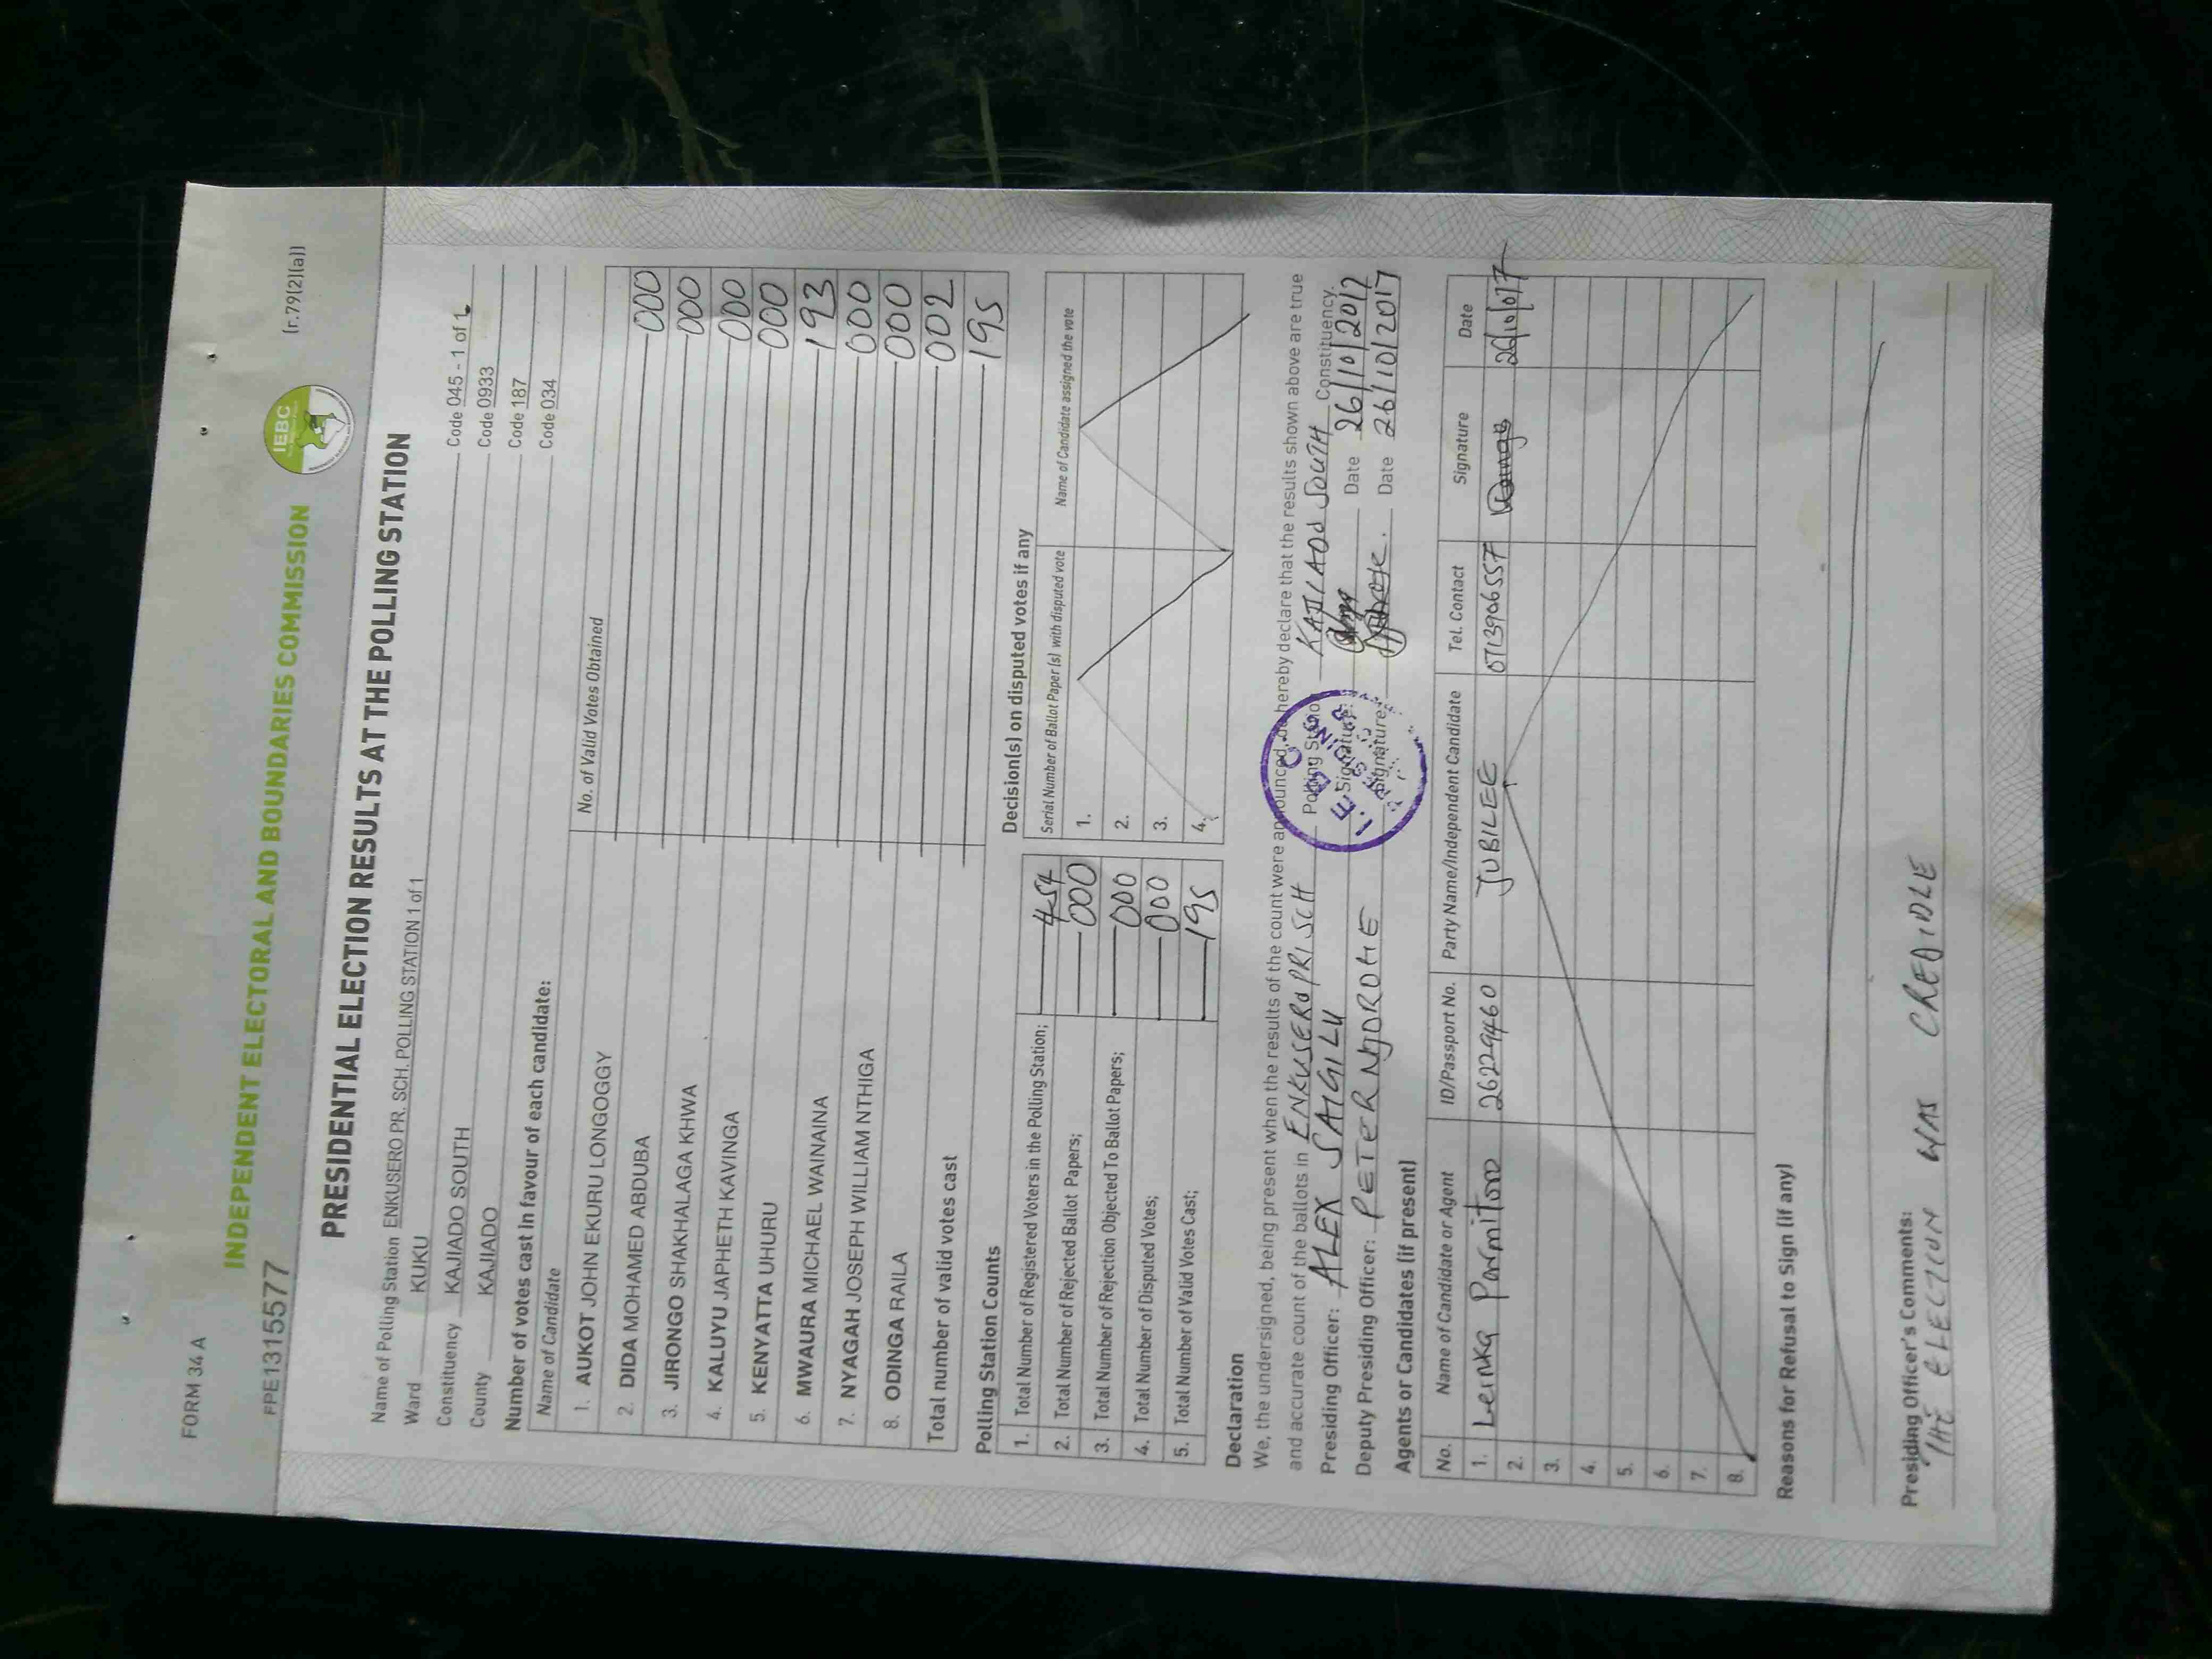 FORM 34 A
(r.79(2)(a))
IEBC
INDEPENDENT ELECTORAL AND BOUNDARIES COMMISSION
PPE1315577
PRESIDENTIAL ELECTION RESULTS AT THE POLLING STATION
Name of Polling Station ENKUSERO PR. SCH. POLLING STATION 1 of 1 Code 045 - 1 of 1
Ward KUKU Code 0933
Constituency KAJIADO SOUTH Code 187
County KAJIADO Code 034
Number of votes cast in favour of each candidate:
Name of Candidate No. of Valid Votes Obtained
1. AUKOT JOHN EKURU LONGOGGY 000
2. DIDA MOHAMED ABDUBA 000
3. JIRONGO SHAKHALAGA KHWA 000
4. KALUYU JAPHETH KAVINGA 000
5. KENYATTA UHURU 193
6. MWAURA MICHAEL WAINAINA 000
7. NYAGAH JOSEPH WILLIAM NTHIGA 000
8. ODINGA RAILA 002
Total number of valid votes cast 195
Polling Station Counts
1. Total Number of Registered Voters in the Polling Station; 454
2. Total Number of Rejected Ballot Papers; 000
3. Total Number of Rejection Objected To Ballot Papers; 000
4. Total Number of Disputed Votes; 000
5. Total Number of Valid Votes Cast; 195
Decision(s) on disputed votes if any
Serial Number of Ballot Paper (s) with disputed vote Name of Candidate assigned the vote
1.
2.
3.
4.
Declaration
We, the undersigned, being present when the results of the count were announced, do hereby declare that the results shown above are true
and accurate count of the ballots in ENKUSERO PRI SCH Polling Station KAJIADO SOUTH Constituency.
Presiding Officer: ALEX SAIGILU Signature: Date 26/10/2017
Deputy Presiding Officer: PETER NJOROHE Signature: Date 26/10/2017
I.E.B.C
PRESIDING
Agents or Candidates (if present)
No. Name of Candidate or Agent ID/Passport No. Party Name/Independent Candidate Tel. Contact Signature Date
1. Leinka Parmitoro 26229460 JUBILEE 0713906557 26/10/017
2.
3.
4.
5.
6.
7.
8.
Reasons for Refusal to Sign (if any)
Presiding Officer's Comments:
THE ELECTION WAS CREDIDLE